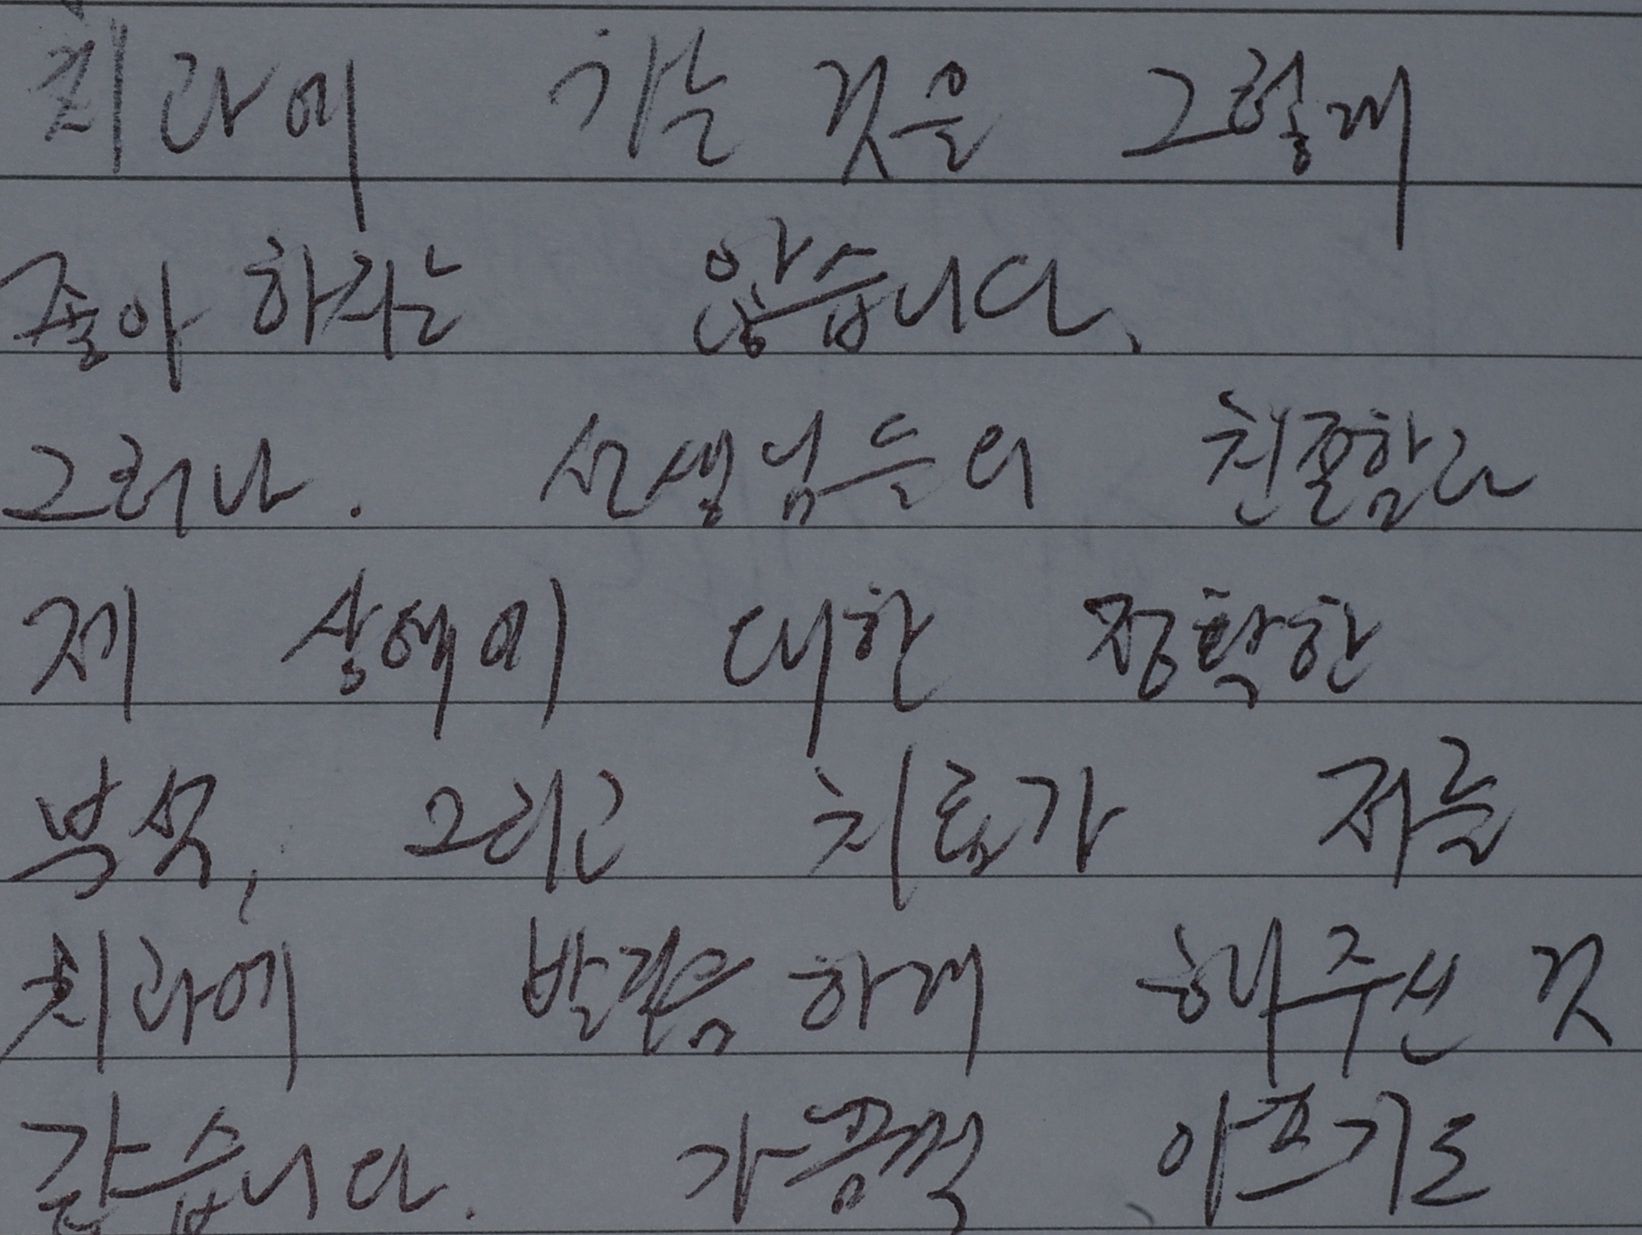 치과에 가는 것을 그렇게
좋아 하지는 않습니다.
그러나. 선생님들의 친절함과
제 상태에 대한 정확한
분석, 그리고 치료가 저를
치과에 발걸음 하게 해주신 것
같습니다. 가끔씩 아프기도